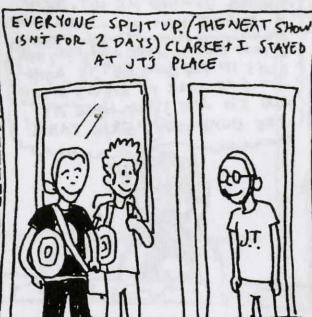 EVERYONE SPLIT UP. (THE NEXT SHOW
ISN'T FOR 2 DAYS) CLARKE + I STAYED
AT JT'S PLACE
J.T.